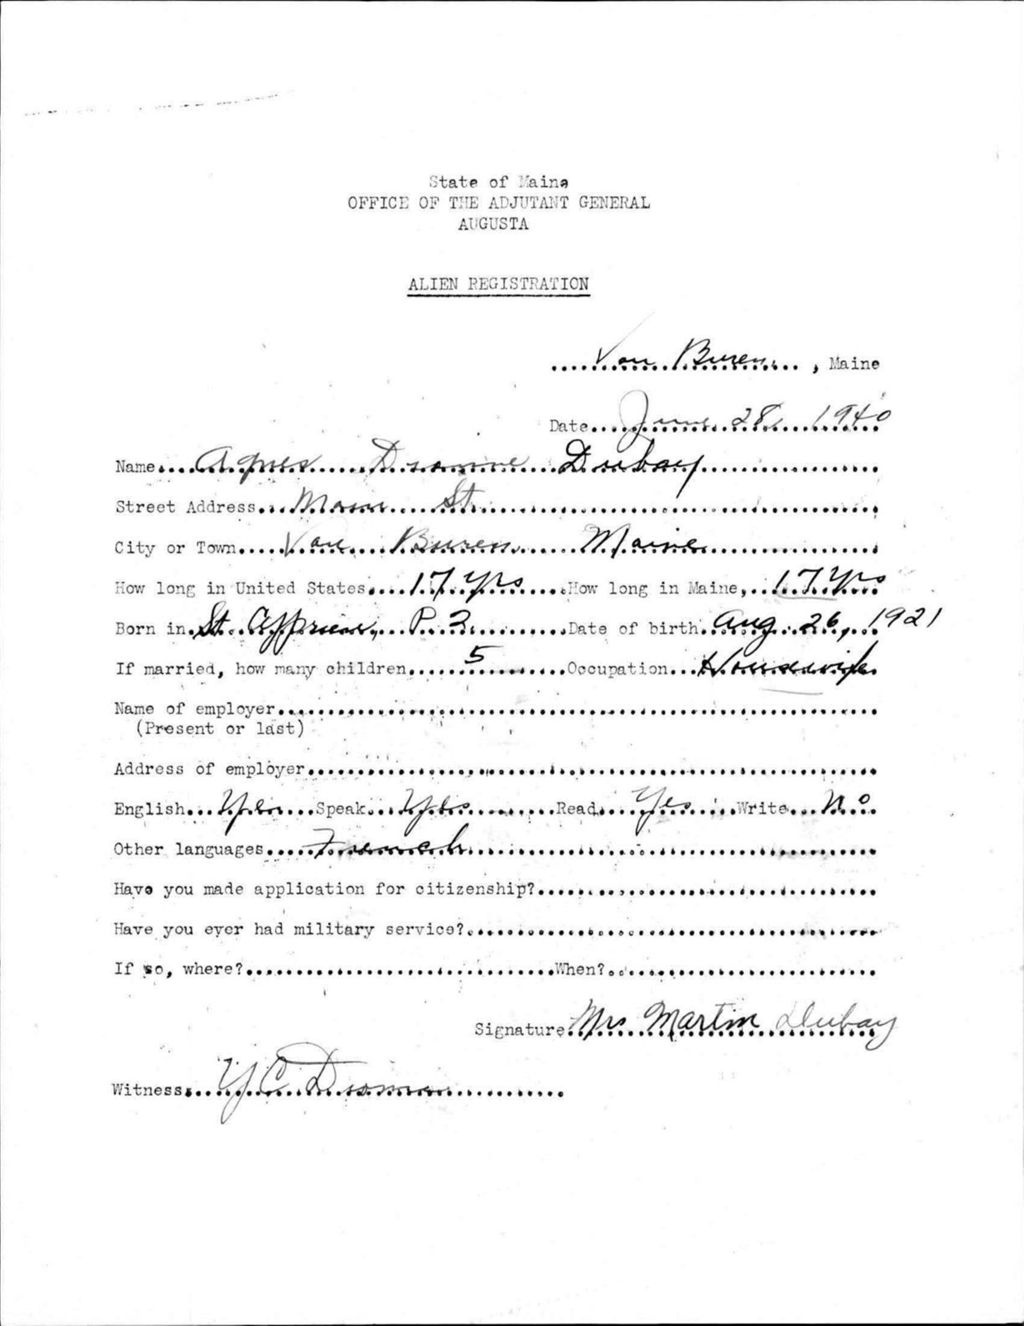 State of Maine
OFFICE OF THE ADJUTANT GENERAL
AUGUSTA
ALIEN REGISTRATION
Van Buren, Maine
Date June 28, 1940
Name Agnes Dionne Dubay
Street Address Main St.
City or Town Van Buren Maine
How long in United States 17 Yrs How long in Maine, 17 Yrs
Born in St. P. Q. Date of birth Aug. 26, 1921
If married, how many children 5 Occupation Housewife
Name of employer
(Present or last)
Address of employer
English Yes Speak Yes Read Yes Write No.
Other languages French
Have you made application for citizenship?
Have you ever had military service?
If so, where? When?
Signature Mrs Martin Dubay
Witness Y C